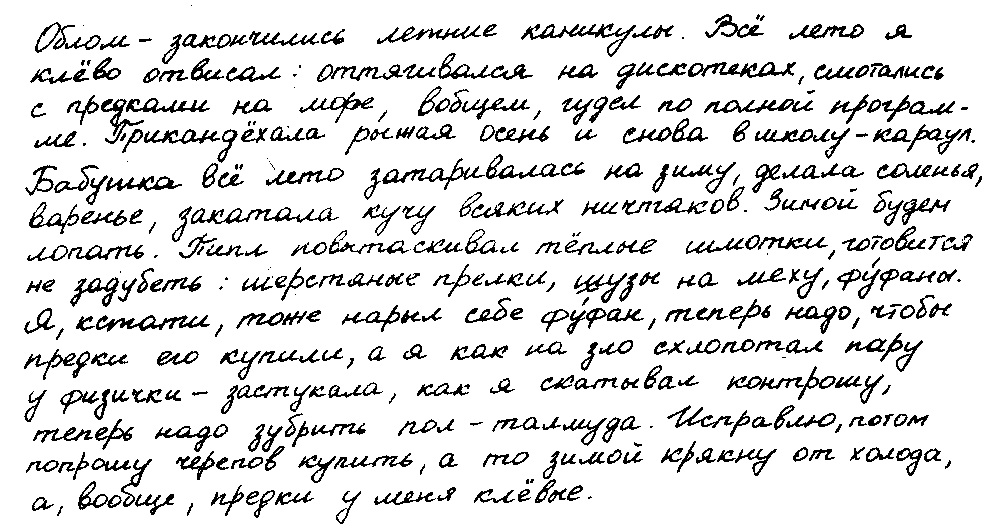 Облом – закончились летние каникулы. Всё лето я
клёво отвисал: оттягивался на дискотеках, смотались
с предками на море, вобщем, гудел по полной програм-
ме. Прикандёхала рыжая осень и снова в школу – караул.
Бабушка всё лето затаривалась на зиму, делала соленья,
варенье, закатала кучу всяких ничтяков. Зимой будем
лопать. Пипл повытаскивал тёплые шмотки, готовится
не задубеть: шерстяные прелки, шузы на меху, фу́фаны.
Я, кстати, тоже нарыл себе фу́фан, теперь надо, чтобы
предки его купили, а я как на зло схлопотал пару
у физички – застукала, как я скатывал контрошу,
теперь надо зубрить пол-талмуда. Исправлю, потом
попрошу черепов купить, а то зимой крякну от холода,
а, вообще, предки у меня клёвые.